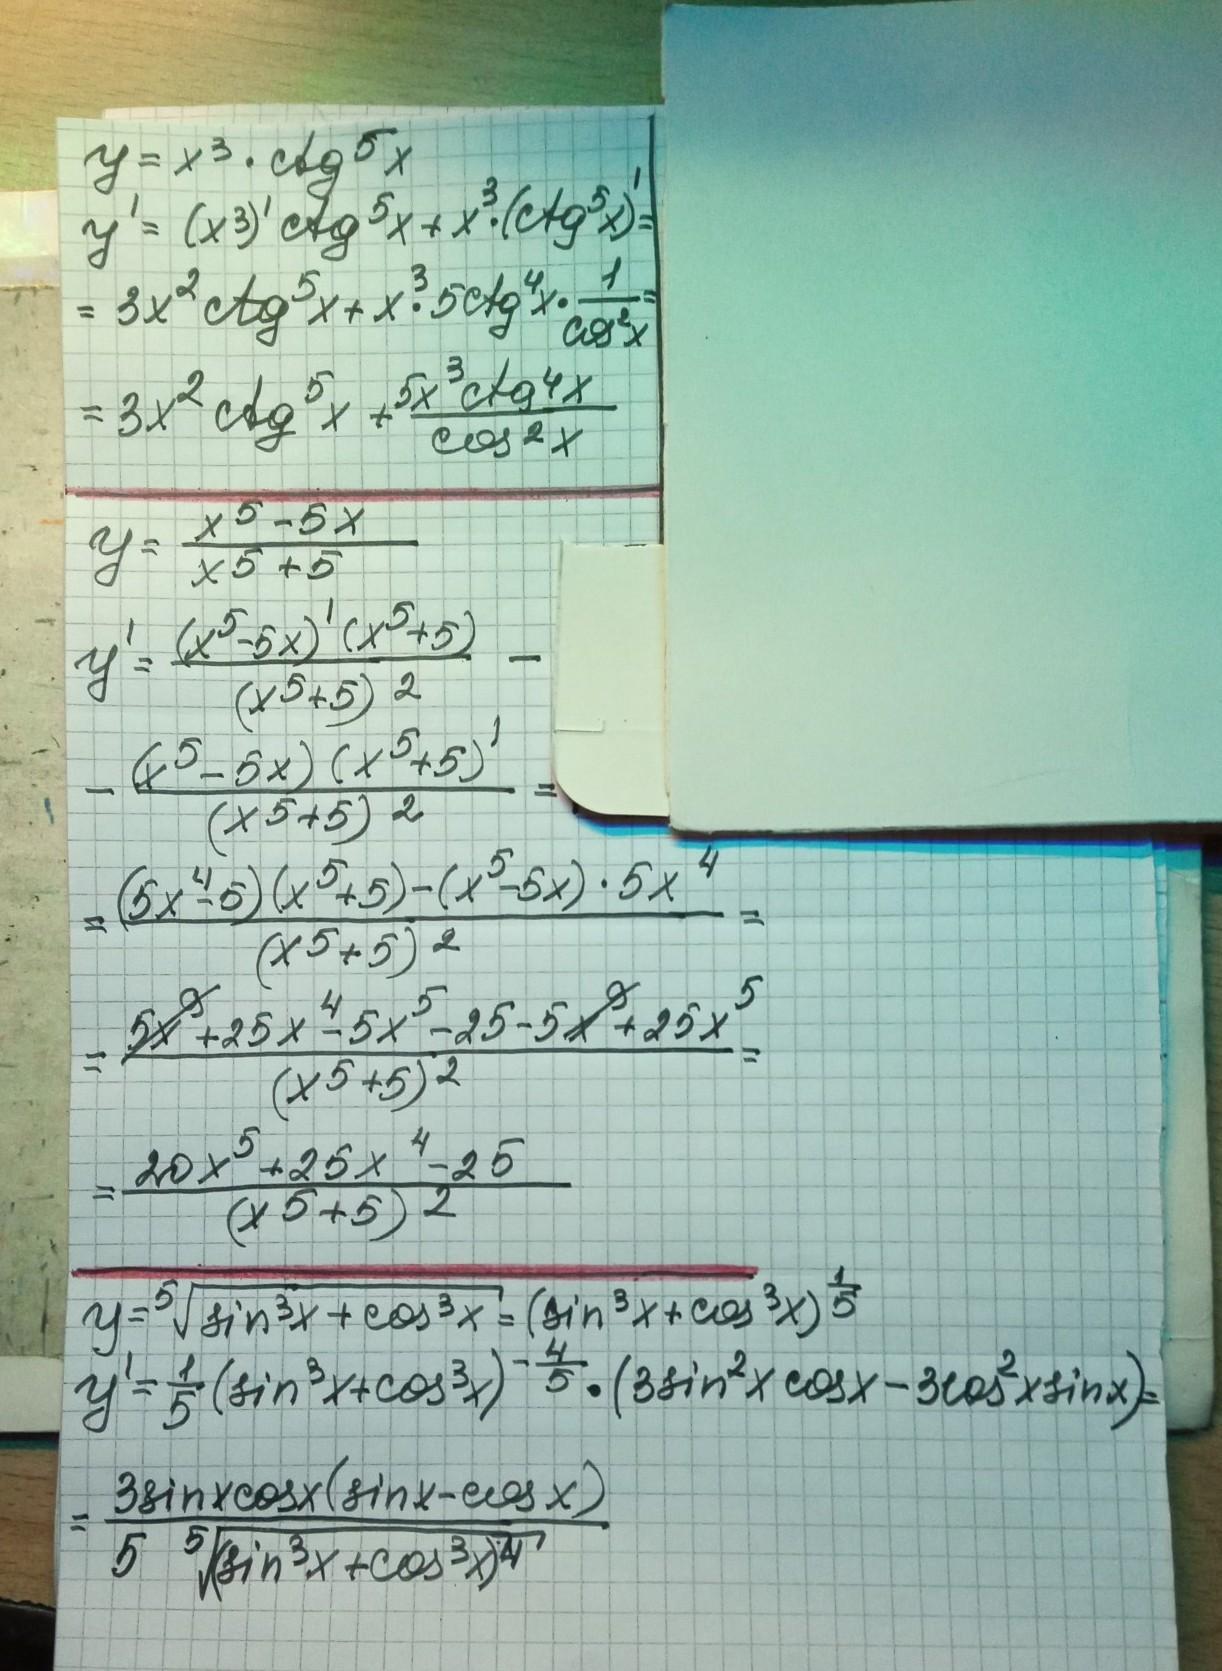 y = x³ · ctg⁵x
y' = (x³)' ctg⁵x + x³·(ctg⁵x)' =
= 3x² ctg⁵x + x³·5ctg⁴x · 1/cos²x =
= 3x² ctg⁵x + 5x³ctg⁴x/cos²x
y = (x⁵ - 5x)/(x⁵ + 5)
y' = (x⁵-5x)'(x⁵+5)/(x⁵+5)² -
- (x⁵-5x)(x⁵+5)'/(x⁵+5)² =
= ((5x⁴-5)(x⁵+5)-(x⁵-5x)·5x⁴)/(x⁵+5)² =
= (5x⁹+25x⁴-5x⁵-25-5x⁹+25x⁵)/(x⁵+5)² =
= (20x⁵+25x⁴-25)/(x⁵+5)²
y = ⁵√(sin³x+cos³x) = (sin³x+cos³x)^(1/5)
y' = 1/5 (sin³x+cos³x)^(-4/5) · (3sin²x cosx - 3cos²x sinx) =
= 3sinxcosx(sinx-cosx)/(5 ⁵√(sin³x+cos³x)⁴)